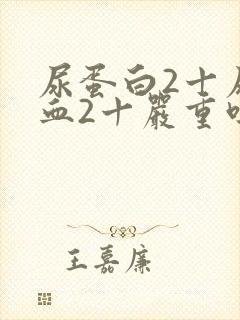 尿蛋白2十
血2十嚴重
王嘉廉